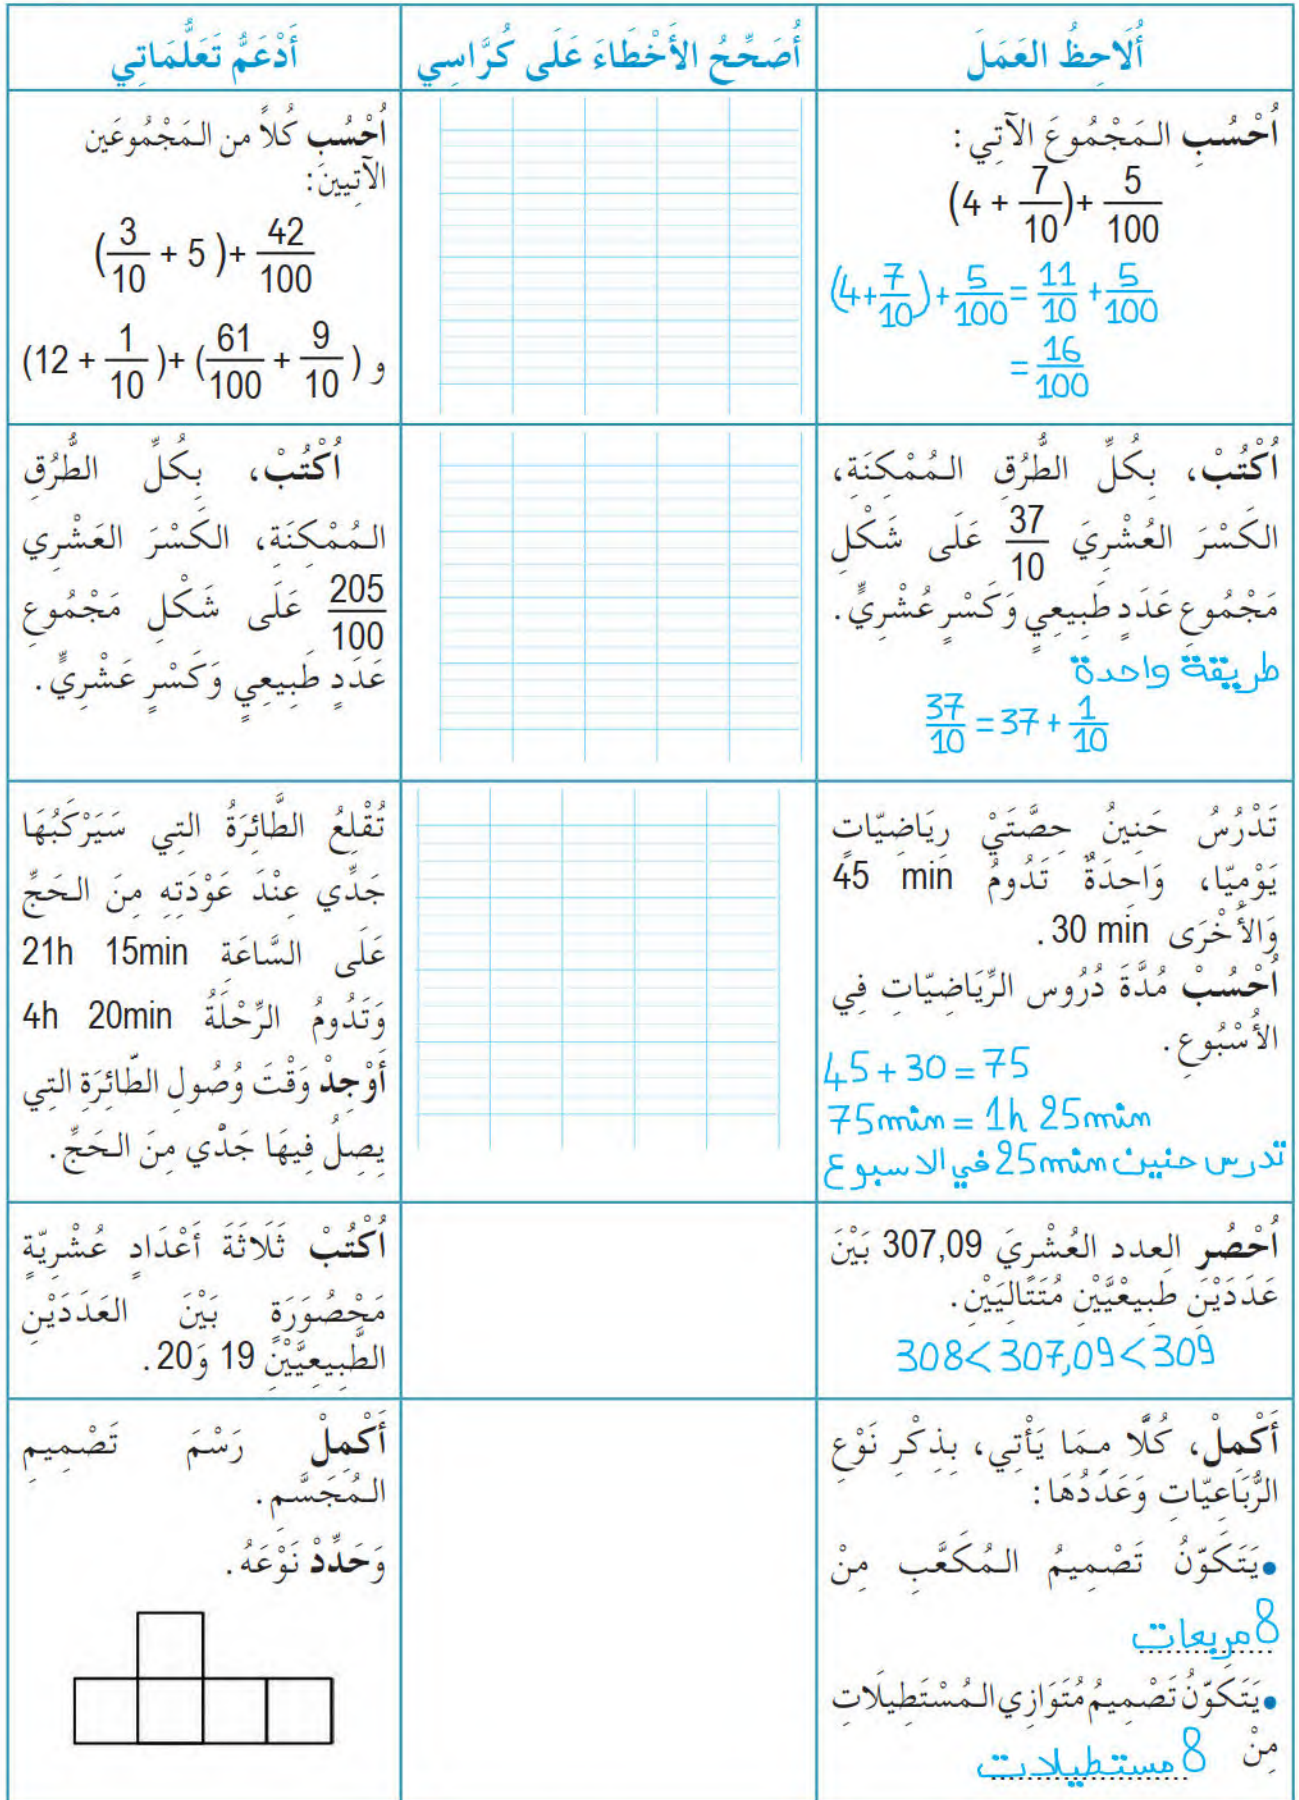 أُلَاحِظُ العَمَلَ
أُصَحِّحُ الأَخْطَاءَ عَلَى كُرَّاسِي
أَدْعَمُّ تَعَلُّمَاتِي
أُحْسُبِ المَجْمُوعَ الآتِي :
(4 + 7/10) + 5/100
(4+7/10)+5/100=11/10+5/100
=16/100
أُحْسُبِ كُلاً من المَجْمُوعَين
الآتِيينَ:
(3/10 + 5 )+ 42/100
و (12 + 1/10 )+ (61/100 + 9/10 )
أُكْتُبْ، بِكُلِّ الطُّرُقِ المُمْكِنَةِ،
الكَسْرَ العُشْرِيَ 37/10 عَلَى شَكْلِ
مَجْمُوعِ عَدَدٍ طَبِيعِيٍ وَكَسْرٍ عُشْرِيٍّ.
طريقة واحدة
37/10 = 37 + 1/10
أُكْتُبْ، بِكُلِّ الطُّرُقِ
المُمْكِنَةِ، الكَسْرَ العَشْرِي
205/100 عَلَى شَكْلِ مَجْمُوعِ
عَدَدٍ طَبِيعِيٍ وَكَسْرٍ عَشْرِيٍّ.
تَدْرُسُ حَنِينُ حِصَّتَيْ رِيَاضِيّاتٍ
يَوْمِيّا، وَاحِدَةٌ تَدُومُ 45 min
وَالأُخْرَى 30 min.
أُحْسُبْ مُدَّةَ دُرُوس الرِّيَاضِيّاتِ فِي
الأُسْبُوعِ.
45+30=75
75min = 1h 25min
تدرس حنين 25min في الاسبوع
تُقْلِعُ الطَّائِرَةُ التِي سَيَرْكَبُهَا
جَدِّي عِنْدَ عَوْدَتِهِ مِنَ الحَجِّ
عَلَى السَّاعَةِ 21h 15min
وَتَدُومُ الرِّحْلَةُ 4h 20min
أَوْجِدْ وَقْتَ وُصُولِ الطّائِرَةِ التِي
يصِلُ فِيهَا جَدّي مِنَ الحَجِّ.
أُحْصُر العدد العُشْرِيَ 307,09 بَيْنَ
عَدَدَيْنِ طَبِيعْيَّيْنِ مُتَتَالِيَيْنِ.
308<307,09<309
أُكْتُبْ ثَلَاثَةَ أَعْدَادٍ عُشْرِيّةٍ
مَحْصُورَةٍ بَيْنَ العَدَدَيْنِ
الطَّبِيعِيَّيْنِ 19 وَ20.
أَكْمِلْ، كُلًّا مِمَا يَأْتِي، بِذِكْرِ نَوْعِ
الرُّبَاعِيّاتِ وَعَدَدُهَا:
•يَتَكَوّنُ تَصْمِيمُ المُكَعَّبِ مِنْ
8 مربعات
•يَتَكَوّنُ تَصْمِيمُ مُتَوَازِي المُسْتَطِيلَاتِ
مِنْ 8 مستطيلات
أَكْمِلْ رَسْمَ تَصْمِيمِ
المُجَسَّمِ.
وَحَدِّدْ نَوْعَهُ.